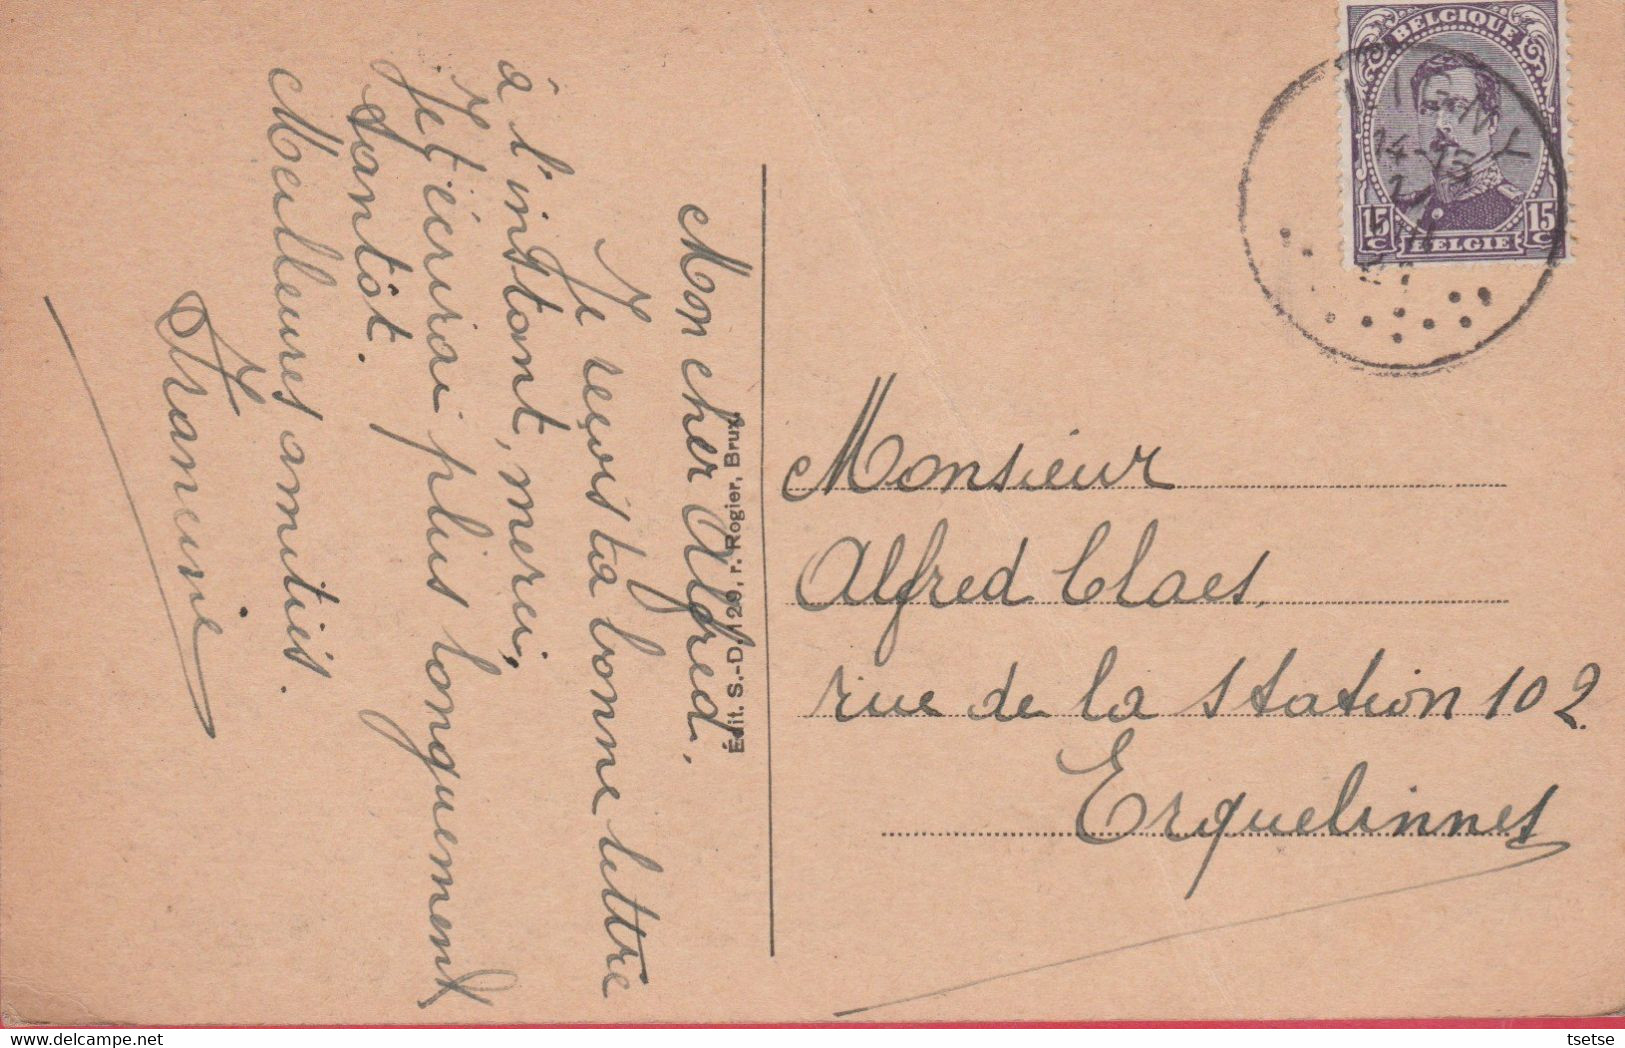 Mon cher Alfred,
Je reçois ta bonne lettre
à l'instant, merci,
Je t'écrirai plus longuement
tantôt.
Meilleures amitiés.
Francine
Édit. S.-D. 129, r. Rogier, Brux.
BELGIQUE
15 C
15 C
BELGIE
LIGNY
14-15
Monsieur
Alfred Claes,
rue de la Station 102
Erquelinnes
tsetse